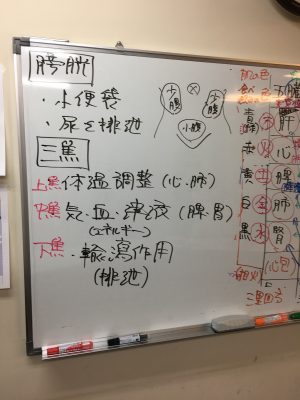 膀胱
・小便袋
・尿を排泄
三焦
上焦 体温調整 (心、肺)
中焦 気・血・津液 (脾、胃)
(エネルギー)
下焦 輸瀉作用
(排泄)
少腹 少腹
小腹
五臓
青 木 肝
赤 火
黄 土
白 金 肺
黒 水 腎
心包